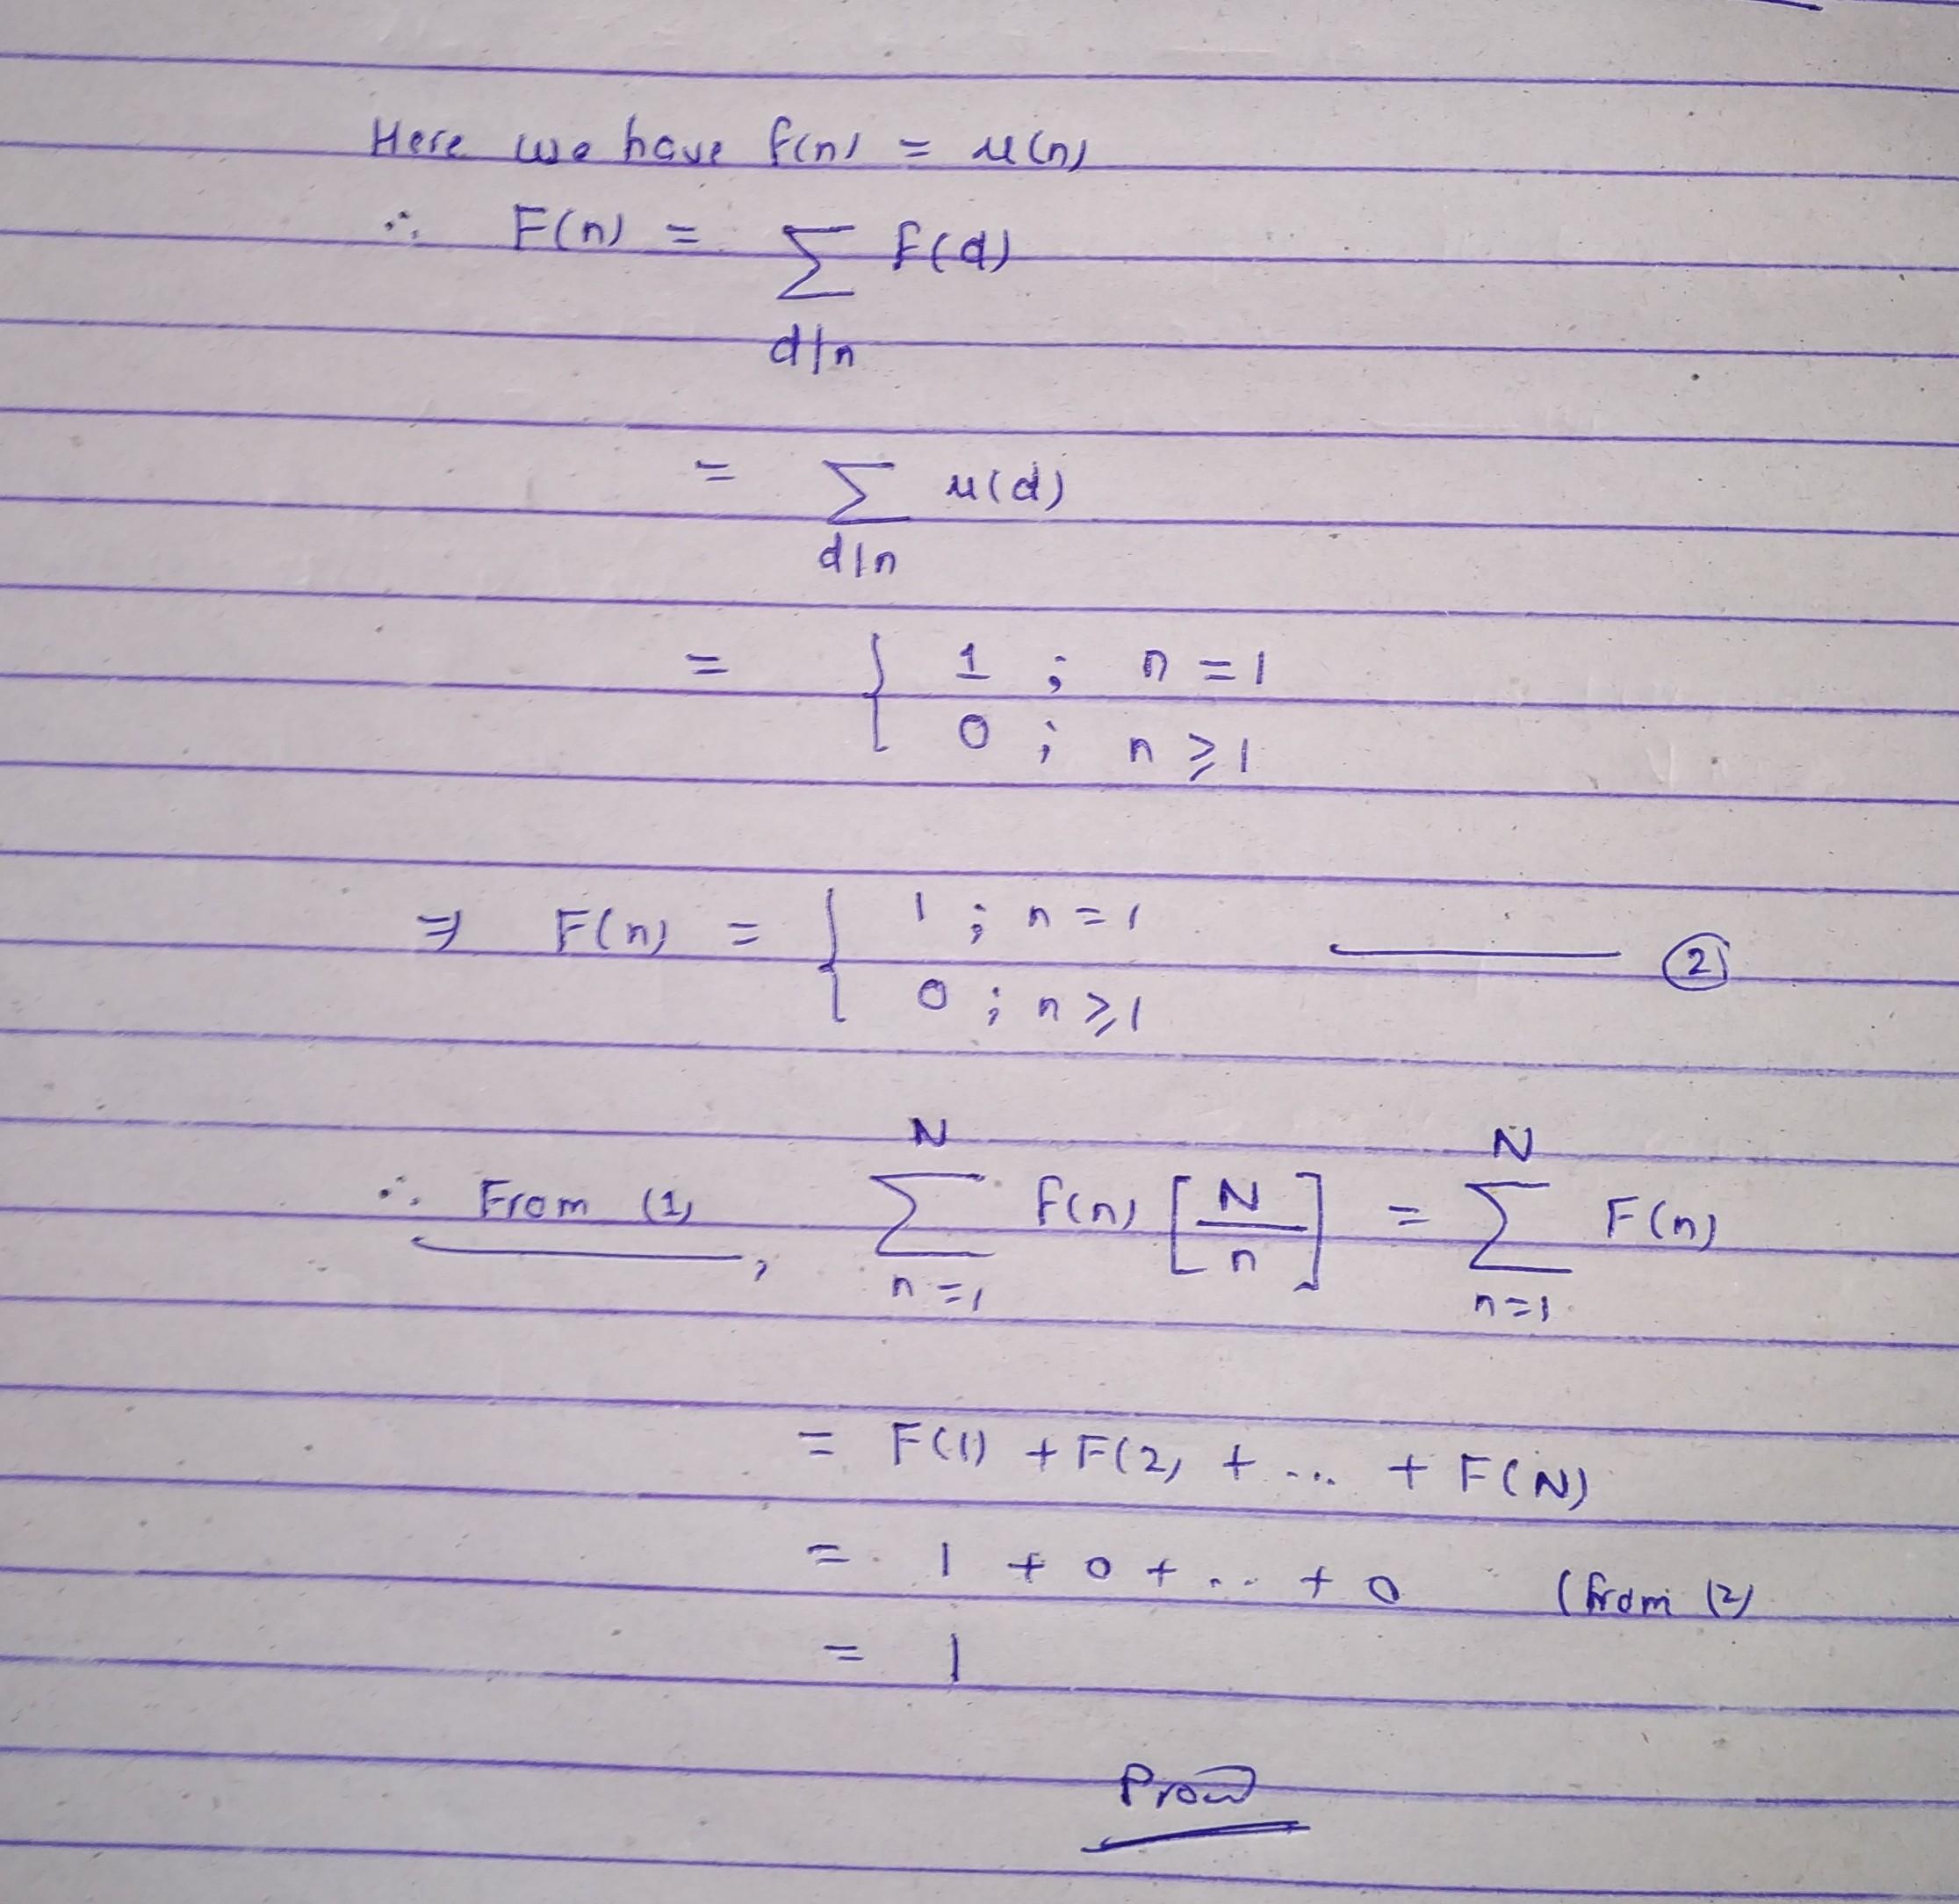 Here we have f(n) = μ(n)
∴ F(n) = ∑ f(d)
d|n
= ∑ μ(d)
d|n
= { 1 ; n = 1
0 ; n ≥ 1
⇒ F(n) = { 1 ; n = 1 ——— ②
0 ; n ≥ 1
N N
∴ From (1), ∑ f(n) [N/n] = ∑ F(n)
n=1 n=1
= F(1) + F(2) + ... + F(N)
= 1 + 0 + ... + 0 (from (2)
= 1
Proved